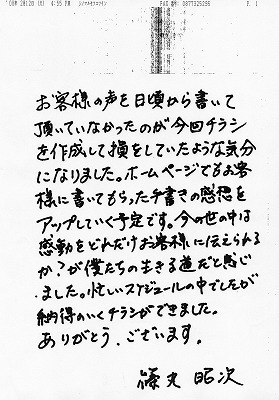 4:55 PM
FAX 番号: 0877325236
P. 1
お客様の声を日頃から書いて
頂いていなかったのが今回チラシ
を作成して損をしていたような気分
になりました。ホームページでもお客
様に書いてもらった手書きの感想を
アップしていく予定です。今の世の中は
感動をどれだけお客様に伝えられる
か?が僕たちの生きる道だと感じ
ました。忙しいスケジュールの中でしたが
納得のいくチラシができました。
ありがとう、ございます。
昭次